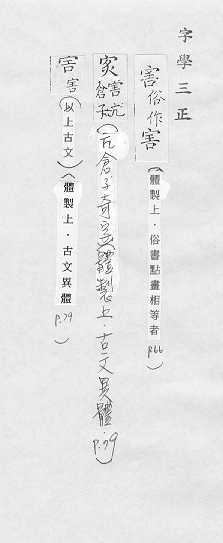 字學三正
害俗作害(體製上．俗書點畫相等者 p.66)
害亢倉子(亢倉子奇字)(體製上．古文異體．p.79)
害(以上古文)(體製上．古文異體 p.79)